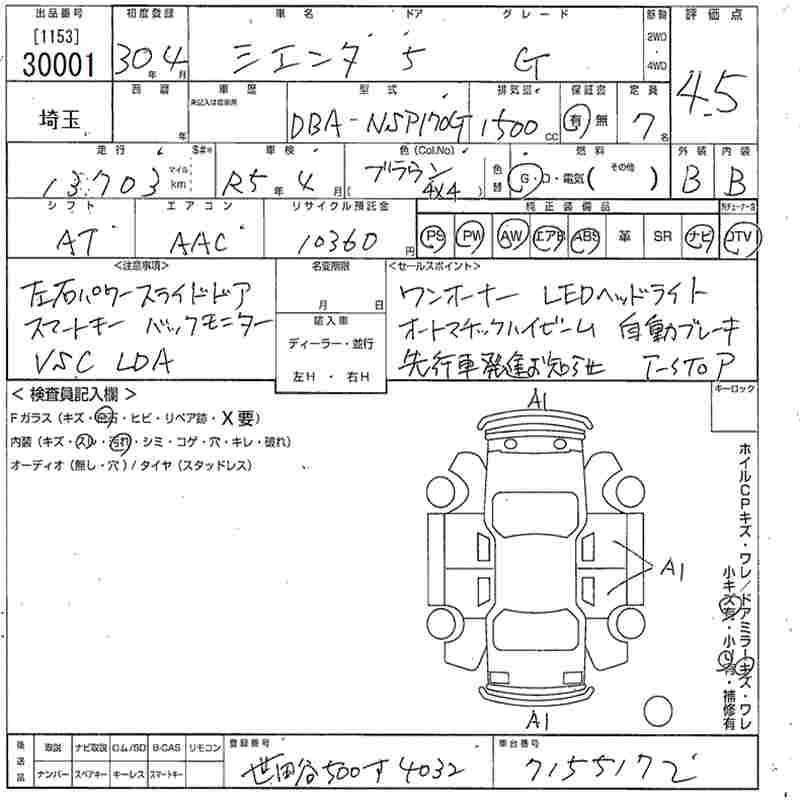 出品番号 初度登録 車名 ドア グレード 駆動 評価点
[1153]
30001 30年4月 シエンタ 5 G 2WD・4WD 4.5
西暦 車歴 型式 排気量 保証書 定員
未記入は自家用
埼玉 年 DBA-NSP170G 1500cc 有 無 7名
走行 S#® 車検 色(Col.No) 燃料 外装 内装
13703 マイル km R5年4月 ブラウン (4X4) 色替 G・D・電気( その他 ) B B
シフト エアコン リサイクル預託金 純正装備品
AT AAC 10360円 PS PW AW エアB ABS 革 SR ナビ TV
<注意事項> 名変期限 <セールスポイント>
左右パワースライドドア 月 日 ワンオーナー LEDヘッドライト
スマートキー バックモニター 輸入車 オートマチックハイビーム 自動ブレーキ
VSC LDA ディーラー・並行 先行車発進お知らせ I-STOP
左H・右H
<検査員記入欄> キーロック
Fガラス(キズ・飛石・ヒビ・リペア跡・X要)
内装(キズ・スレ・汚れ・シミ・コゲ・穴・キレ・破れ)
オーディオ(無し・穴)/タイヤ(スタッドレス)
A1
A1
A1
ホイルCPキズ・ワレ/ドアミラーキズ・ワレ
小キズ有・小凹有・補修有
後送品 取説 ナビ取説 ロム/SD B-CAS リモコン 登録番号 車台番号
ナンバー スペアキー キーレス スマートキー 世田谷500す4032 7155172